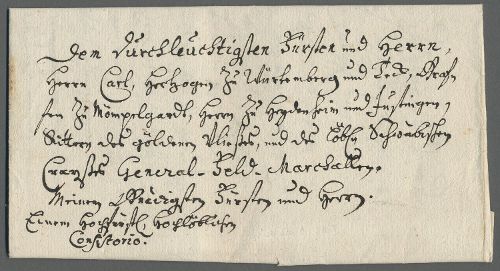 Dem Durchleuchtigsten Fürsten und Herrn,
Herrn Carl, Hertzogen zu Würtemberg und Teck, Grafen
fen zu Mömpelgardt, Herrn zu Heydenheim und Justingen,
Rittern des göldenen Vließes, und des löbl. Schwäbischen
Crayses General-Feld-Marchallen.
Meinem Gnädigsten Fürsten und Herrn.
Einem Hochfürstl. Hochlöblichen
Consistorio.